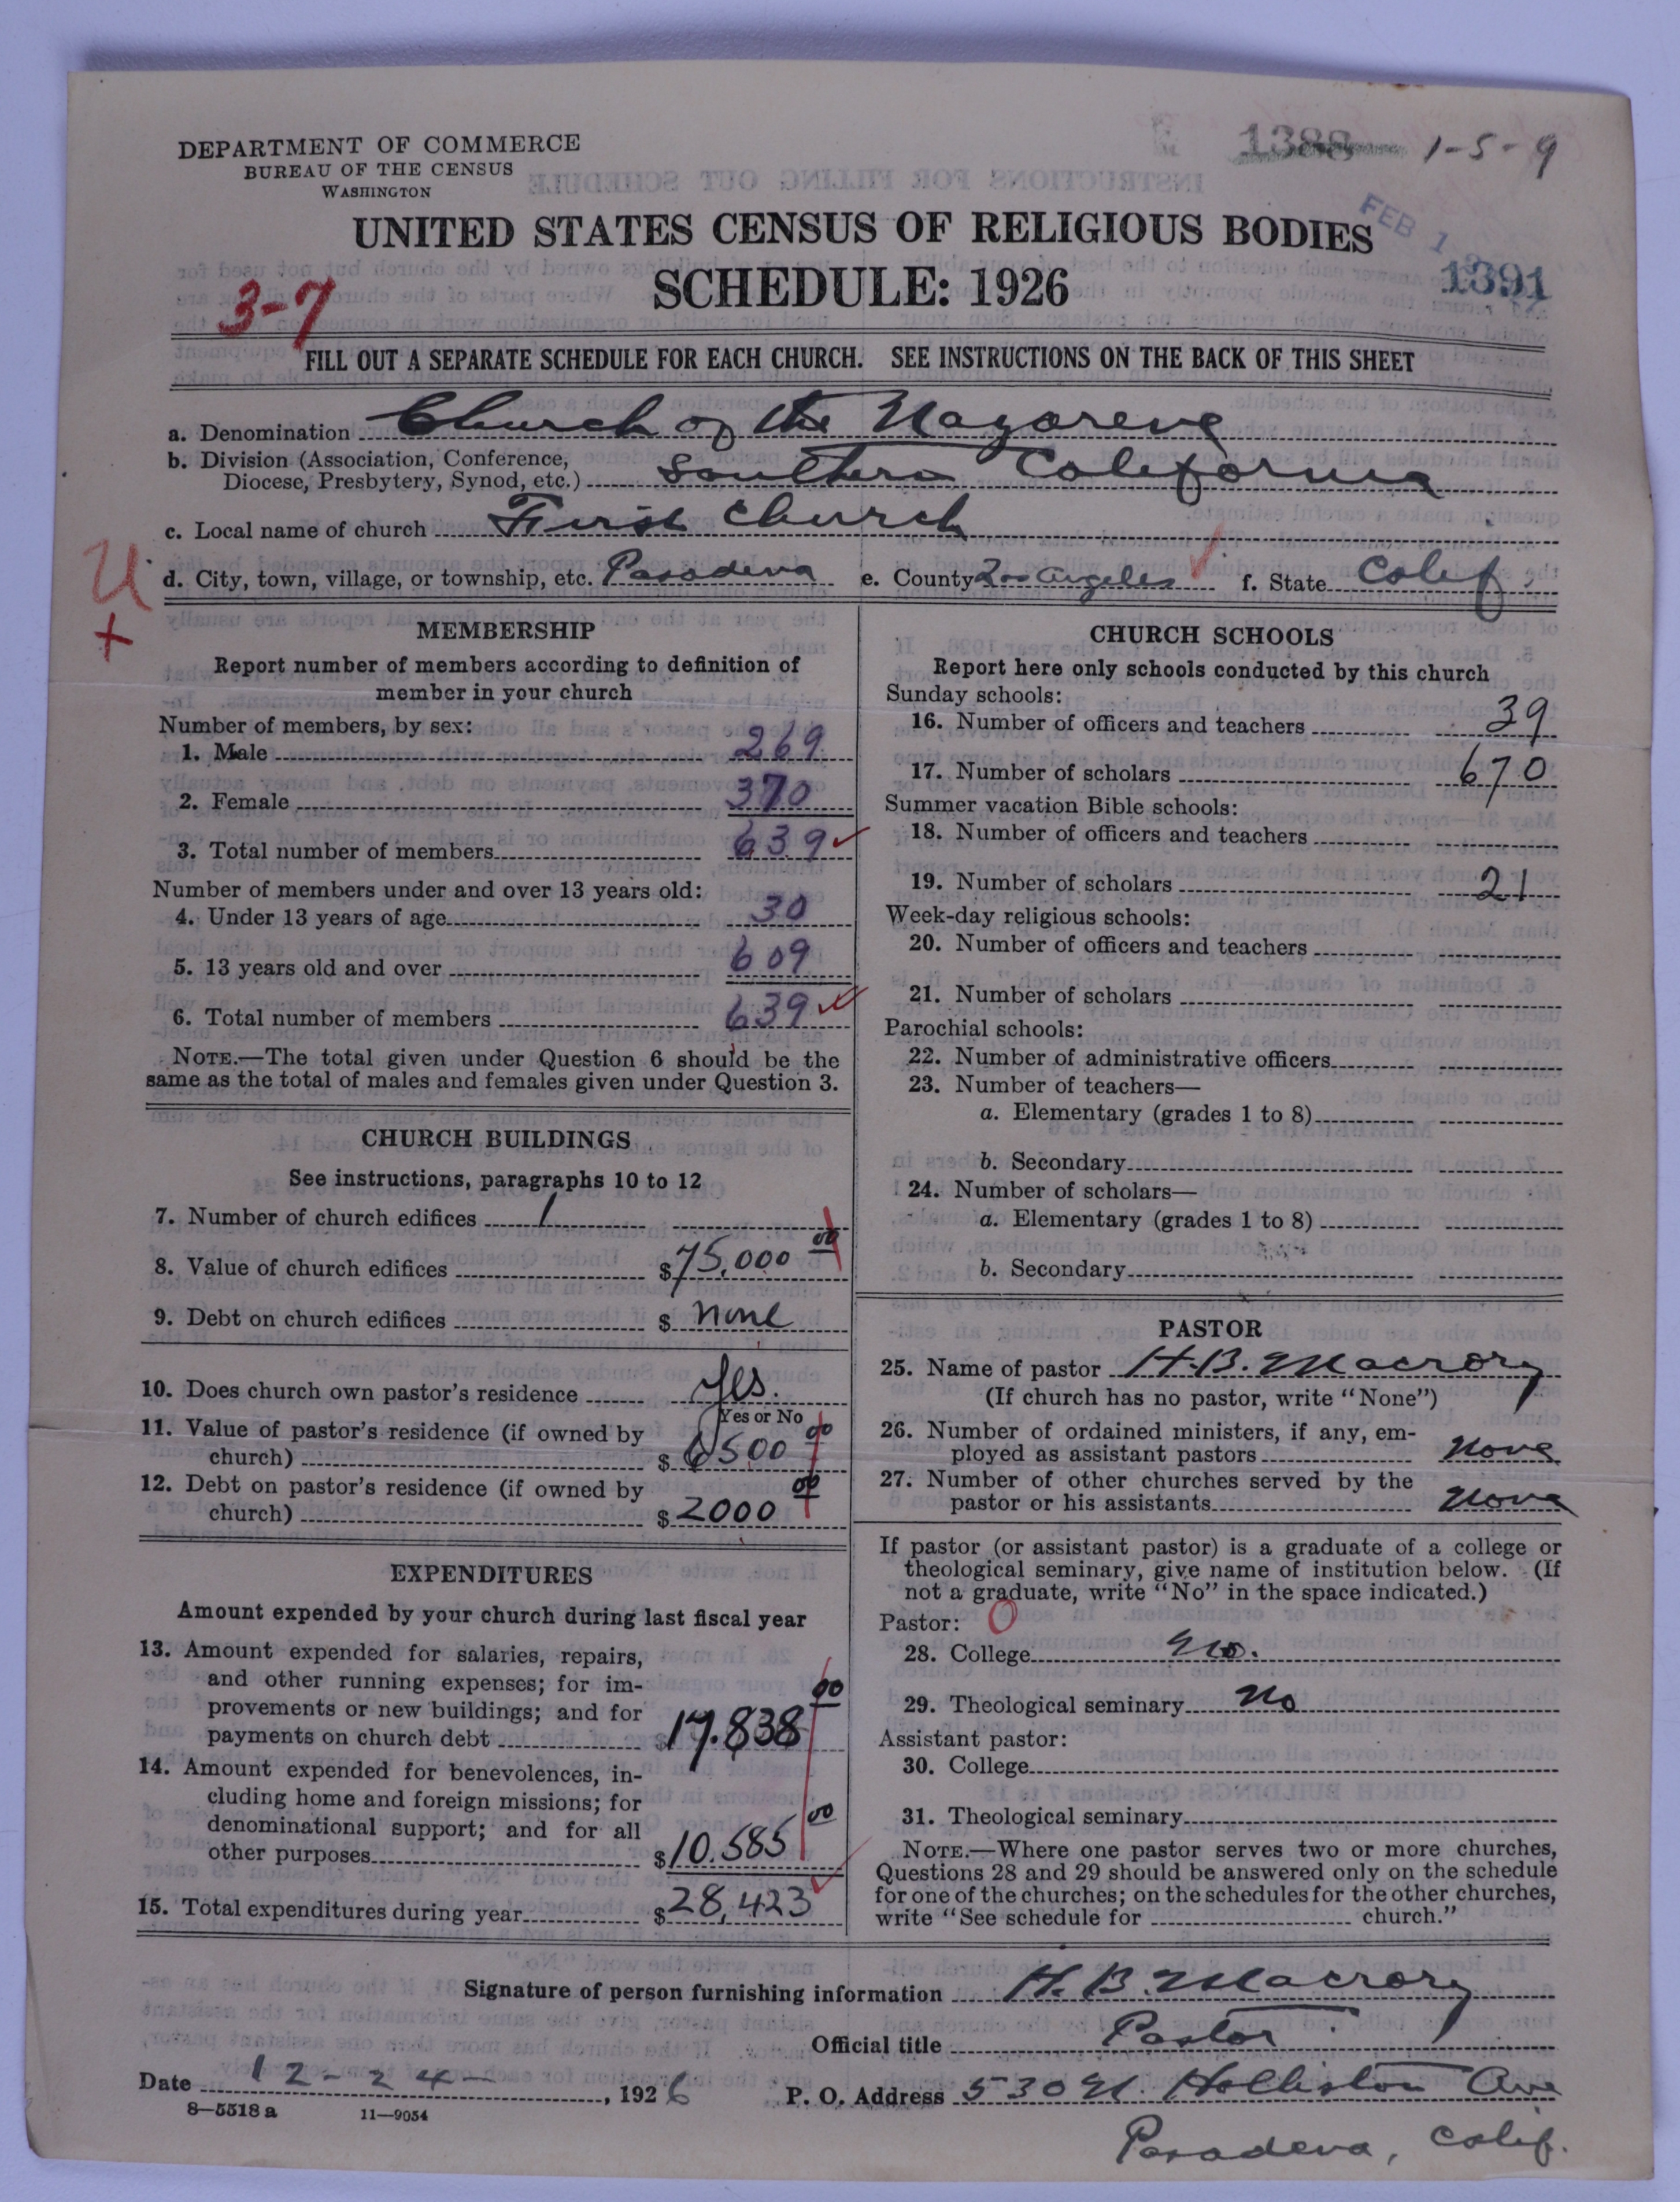 DEPARTMENT OF COMMERCE
BUREAU OF THE CENSUS
WASHINGTON
1388 1-5-9
UNITED STATES CENSUS OF RELIGIOUS BODIES
FEB 1
SCHEDULE: 1926
1391
3-7
FILL OUT A SEPARATE SCHEDULE FOR EACH CHURCH. SEE INSTRUCTIONS ON THE BACK OF THIS SHEET
a. Denomination Church of the Nazarene
b. Division (Association, Conference,
Diocese, Presbytery, Synod, etc.) Southern California
c. Local name of church First Church
U
d. City, town, village, or township, etc. Pasadena e. County Los Angeles f. State Calif.
+
MEMBERSHIP
Report number of members according to definition of
member in your church
Number of members, by sex:
1. Male 269
2. Female 370
3. Total number of members 639 ✓
Number of members under and over 13 years old:
4. Under 13 years of age 30
5. 13 years old and over 609
6. Total number of members 639 ✓
NOTE.—The total given under Question 6 should be the
same as the total of males and females given under Question 3.
CHURCH BUILDINGS
See instructions, paragraphs 10 to 12
7. Number of church edifices 1
8. Value of church edifices $ 75,000 00
9. Debt on church edifices $ none
10. Does church own pastor's residence Yes.
Yes or No
11. Value of pastor's residence (if owned by
church) $ 6500 00
12. Debt on pastor's residence (if owned by
church) $ 2000 00
EXPENDITURES
Amount expended by your church during last fiscal year
13. Amount expended for salaries, repairs,
and other running expenses; for im-
provements or new buildings; and for
payments on church debt $ 17.838 00
14. Amount expended for benevolences, in-
cluding home and foreign missions; for
denominational support; and for all
other purposes $ 10.585 00
15. Total expenditures during year $ 28,423 ✓
CHURCH SCHOOLS
Report here only schools conducted by this church
Sunday schools:
16. Number of officers and teachers 39
17. Number of scholars 670
Summer vacation Bible schools:
18. Number of officers and teachers
19. Number of scholars 21
Week-day religious schools:
20. Number of officers and teachers
21. Number of scholars
Parochial schools:
22. Number of administrative officers
23. Number of teachers—
a. Elementary (grades 1 to 8)
b. Secondary
24. Number of scholars—
a. Elementary (grades 1 to 8)
b. Secondary
PASTOR
25. Name of pastor H. B. Macrory
(If church has no pastor, write "None")
26. Number of ordained ministers, if any, em-
ployed as assistant pastors None
27. Number of other churches served by the
pastor or his assistants None
If pastor (or assistant pastor) is a graduate of a college or
theological seminary, give name of institution below. (If
not a graduate, write "No" in the space indicated.)
Pastor: 0
28. College No.
29. Theological seminary No
Assistant pastor:
30. College
31. Theological seminary
NOTE.—Where one pastor serves two or more churches,
Questions 28 and 29 should be answered only on the schedule
for one of the churches; on the schedules for the other churches,
write "See schedule for church."
Signature of person furnishing information H. B. Macrory
Official title Pastor
Date 12-24-, 1926 P. O. Address 530 N. Holliston Ave
8—5518 a 11—9054
Pasadena, Calif.